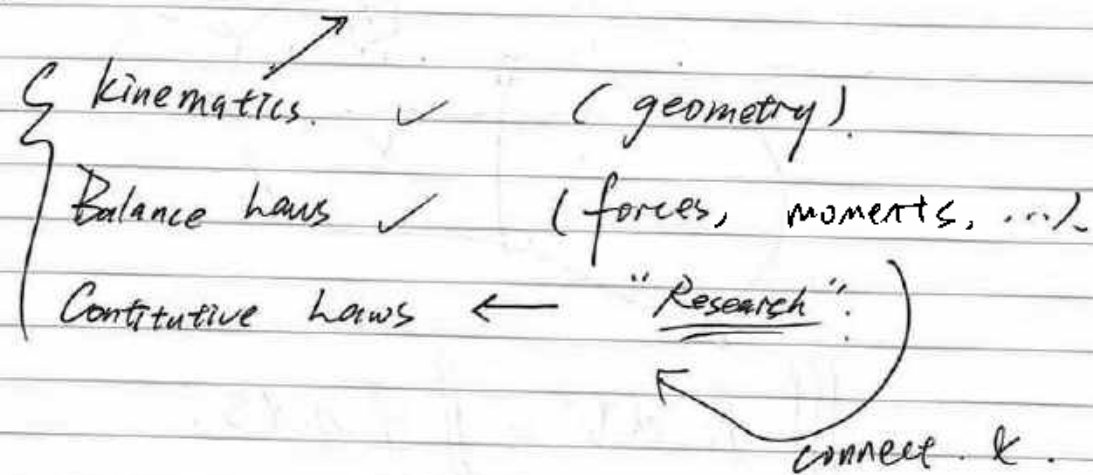 kinematics. ✓ (geometry).
Balance Laws ✓ (forces, moments, ...).
Contitutive Laws ← "Research".
connect. &.